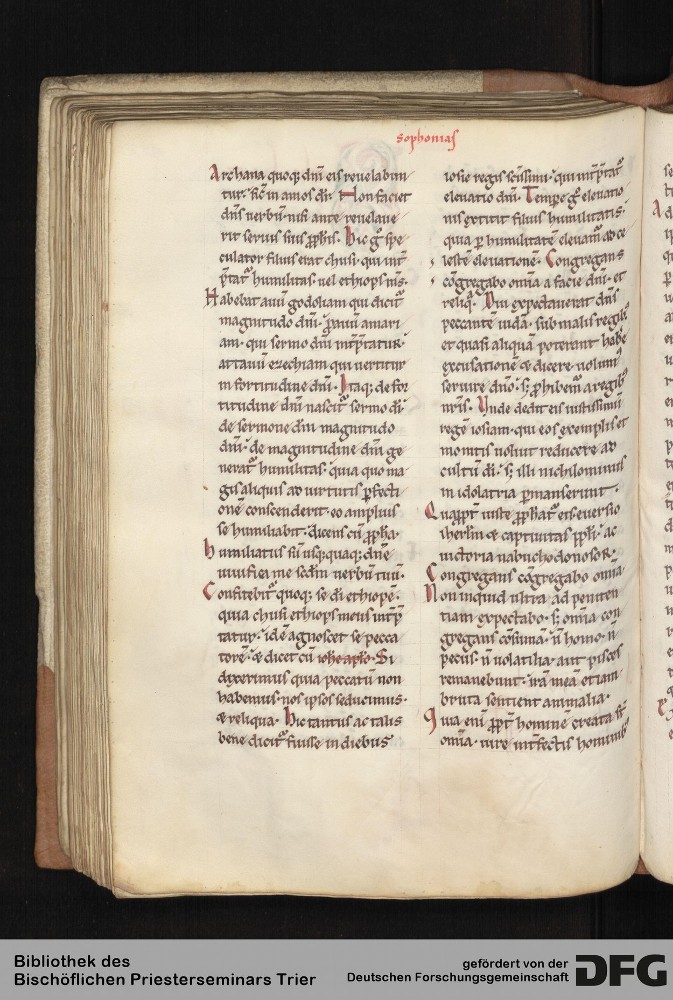 sophonias
Archana quoq; dñi eis reuelabun
tur. sic̄ in amos dr̄. Non faciet
dñs uerbū nisi ante reuelaue
rit seruis suis ꝓph̄is. Hic gͦ spe
culator filius erat chusi. qui int̄
p̄tatᷣ humilitas uel ethiops m̄s.
Habebat auū godoliam qui dicitᷣ
magnitudo dñi. ꝓauū amari
am. qui sermo dñi int̄p̄tatur.
attauū ezechiam qui uertitur
in fortitudine dñi. Itaq; de for
titudine dñi nascitᷣ sermo dī.
de sermone dñi magnitudo
dñi. de magnitudine dñi ge
neratᷣ humilitas. quia quo ma
gis aliquis ad uirtutis ꝑfecti
onē conscenderit. eo amplius
se humiliabit. dicens cū ꝓph̄a.
Humiliatus sū usq;quaq; dñe
uiuifica me scd̄m uerbū tuū.
Confitebitᷣ quoq; se dī ethiopē.
quia chusi ethiops meus int̄p̄
tatur. idē agnoscet se pecca
torē. & dicet cū ioh̄e ap̄lo. Si
dixerimus quia peccatū non
habemus. nos ipsos seducimus.
& reliqua. Hic tantus ac talis
bene dicitᷣ fuisse in diebus
iosie regis sc̄issimi. qui int̄p̄tatᷣ
eleuatio dñi. Tempe gͦ eleuatio
nis extitit filius humilitatis.
quia ꝑ humilitatē eleuamᷣ ad ce
lestē eleuationē. Congregans
cōgregabo omīa a facie dñi. et
reliqͣ. Diu expectauerat dñs
peccantē iudā. sub malis regibꝰ
et quasi aliquā poterant habe
excusationē & dicere. uolumꝰ
seruire dño. s; ꝓhibemᷣ a regibꝰ
nr̄is. Vnde dedit eis iustissimū
regē iosiam. qui eos exemplis et
monitis uoluit reducere ad
cultū dī. s; illi nichilominus
in idolatria ꝑmanserunt.
Quaꝓpt̄ iuste ꝓph̄atᷣ eis euersio
ih̄erl̄m & captiuitas pp̄li. ac
uictoria nabuchodonosor.
Congregans cōgregabo omīa.
Non inquid ultra ad peniten
tiam expectabo. s; omīa con
gregans cōsumā. ñ homo. ñ
pecus. ñ uolatilia. aut pisces
remanebunt. irā meā etiam
bruta sentient animalia.
Quia eni ꝓpt̄ hominē creata st̄
omīa. iure int̄fectis hominibꝰ
Bibliothek des
Bischöflichen Priesterseminars Trier
gefördert von der
Deutschen Forschungsgemeinschaft
DFG